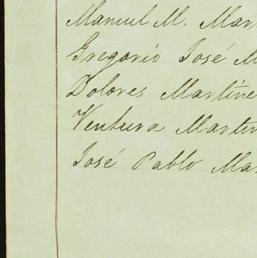 Manuel M. Mar
Gregorio José M
Dolores Martine
Ventura Martin
José Pablo Mar